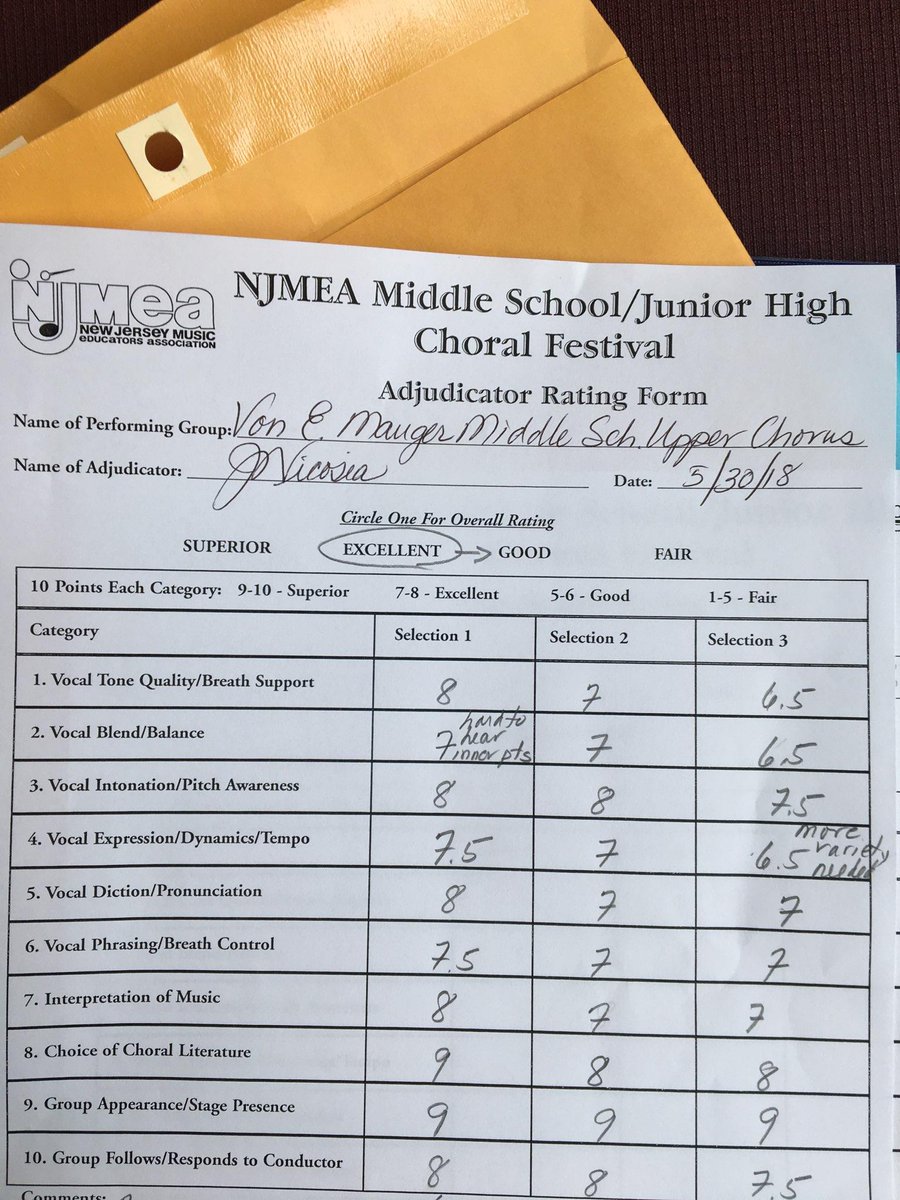 NJmea
NEW JERSEY MUSIC
EDUCATORS ASSOCIATION
NJMEA Middle School/Junior High
Choral Festival
Adjudicator Rating Form
Name of Performing Group: Von E. Mauger Middle Sch. Upper Chorus
Name of Adjudicator: J Nicosia Date: 5/30/18
Circle One For Overall Rating
SUPERIOR EXCELLENT → GOOD FAIR
10 Points Each Category: 9-10 - Superior 7-8 - Excellent 5-6 - Good 1-5 - Fair
Category Selection 1 Selection 2 Selection 3
1. Vocal Tone Quality/Breath Support 8 7 6.5
2. Vocal Blend/Balance 7 hard to hear inner pts 7 6.5
3. Vocal Intonation/Pitch Awareness 8 8 7.5
4. Vocal Expression/Dynamics/Tempo 7.5 7 6.5 more variety needed
5. Vocal Diction/Pronunciation 8 7 7
6. Vocal Phrasing/Breath Control 7.5 7 7
7. Interpretation of Music 8 7 7
8. Choice of Choral Literature 9 8 8
9. Group Appearance/Stage Presence 9 9 9
10. Group Follows/Responds to Conductor 8 8 7.5
Comments: